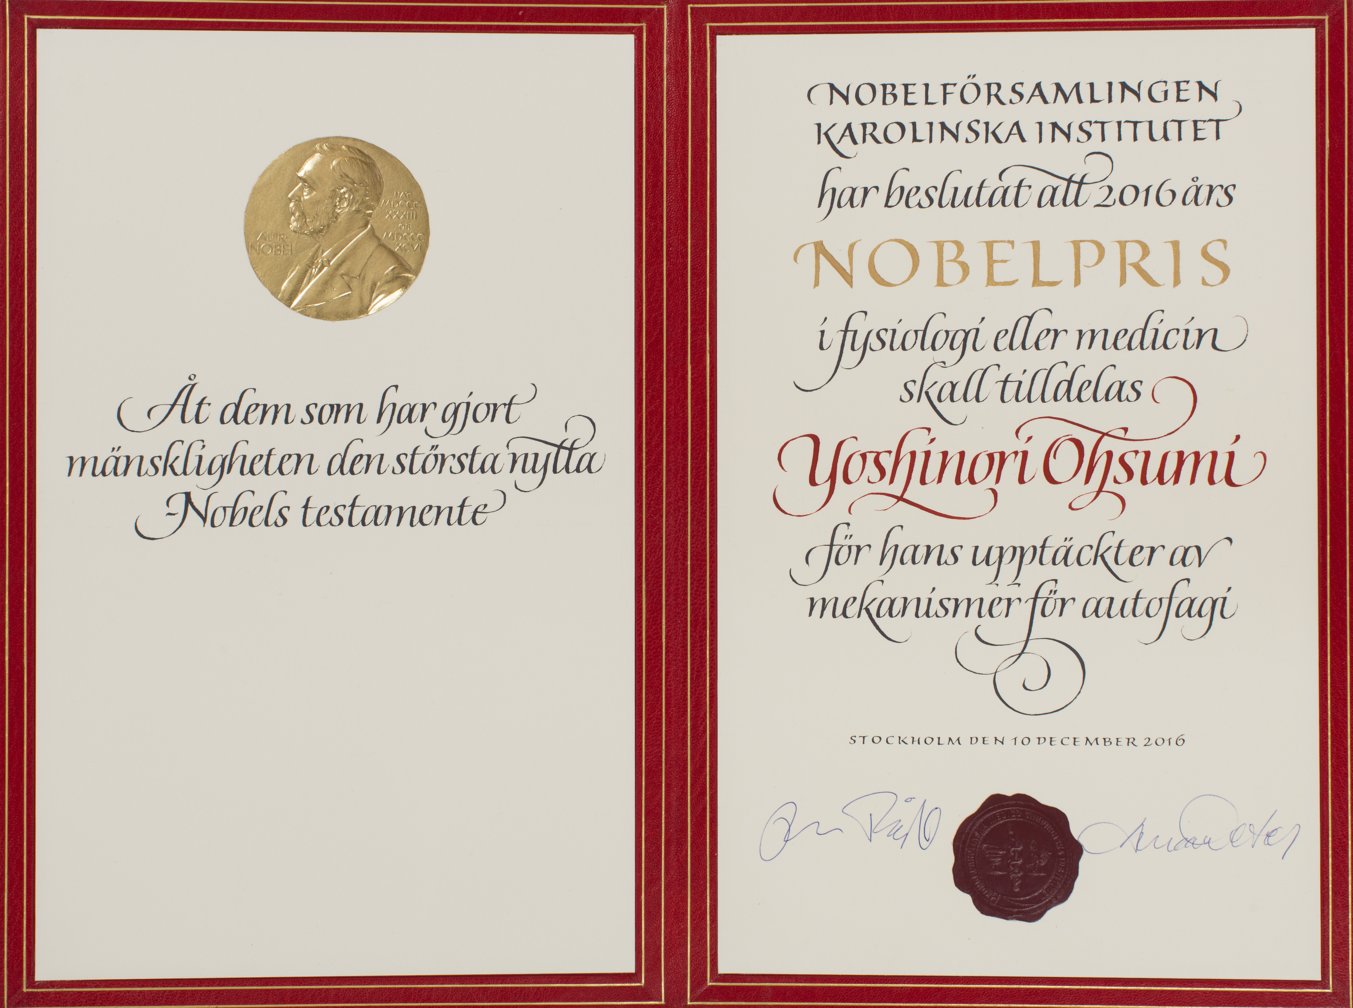 ALFR·
NOBEL
NAT·
MDCCC
XXXIII
OB·
MDCCC
XCVI
Åt dem som har gjort
mänskligheten den största nytta
Nobels testamente
NOBELFÖRSAMLINGEN
KAROLINSKA INSTITUTET
har beslutat att 2016 års
NOBELPRIS
i fysiologi eller medicin
skall tilldelas
Yoshinori Ohsumi
för hans upptäckter av
mekanismer för autofagi
STOCKHOLM DEN 10 DECEMBER 2016